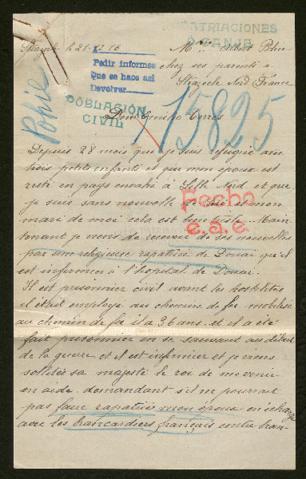 Pohie
Pedir informes
Que se haga así
Devolver
REPATRIACIONES
chez ses parents à
Nord France
POBLACIÓN
CIVIL
13825
Don Emilio Torres
Depuis 28 mois que je suis réfugiée avec
trois petits enfants et que mon époux est
resté en pays envahi à Nord et que
je suis sans nouvelle
mari de moi cela est bien triste Main
tenant je viens de recevoir de ses nouvelles
par une religieuse rapatriée de Douai qu'il
est infirmier à l'hopital de Douai.
Il est prisonnier civil avant les hostilités
il était employé au chemin de fer mobilisé
au chemin de fer il a 36 ans et il a été
fait prisonnier en se sauvant au début
de la guerre et il est infirmier et je viens
sollicitée sa majesté le roi de me venir
en aide demandant s'il ne pourrait
pas faire rapatrié mon époux en échange
avec les brancardiers français
Fecho
e.a.e